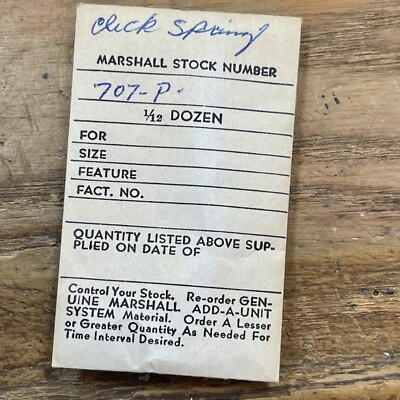 click spring
MARSHALL STOCK NUMBER
707-P.
1/12 DOZEN
FOR
SIZE
FEATURE
FACT. NO.
QUANTITY LISTED ABOVE SUP-
PLIED ON DATE OF
Control Your Stock. Re-order GEN-
UINE MARSHALL ADD-A-UNIT
SYSTEM Material. Order A Lesser
or Greater Quantity As Needed For
Time Interval Desired.